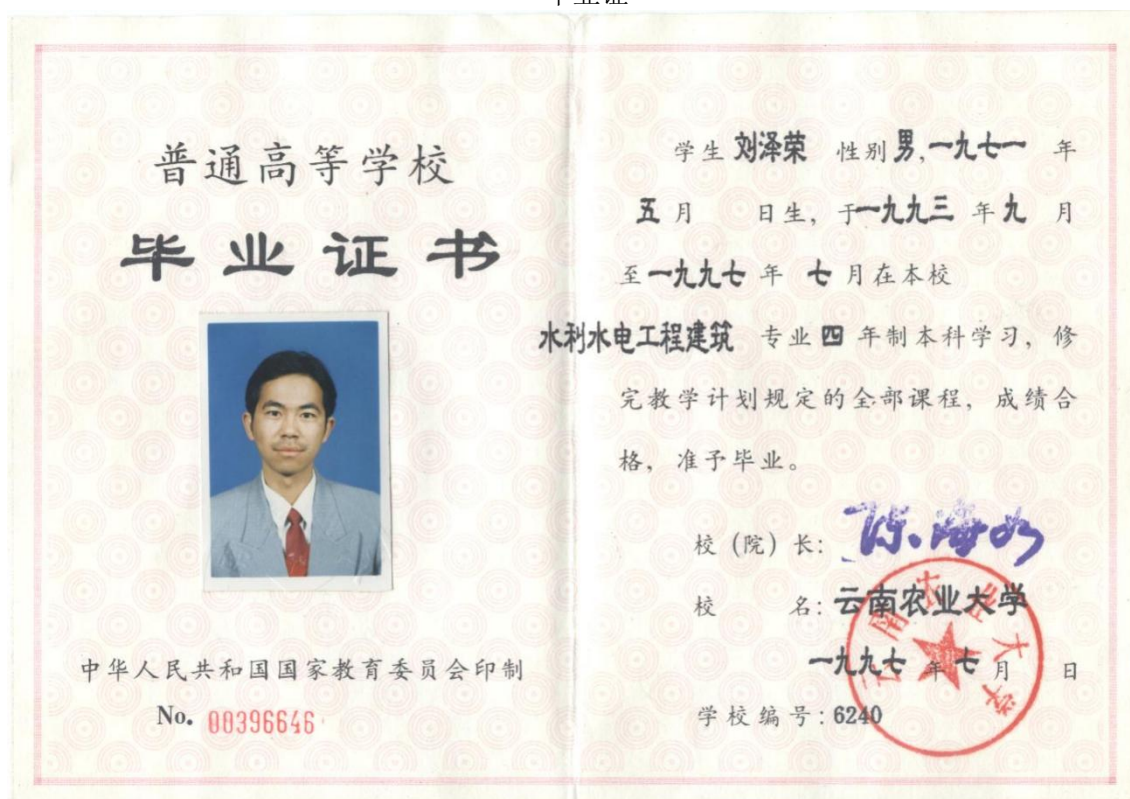 毕业证
普通高等学校
毕业证书
中华人民共和国国家教育委员会印制
No. 00396646
学生 刘泽荣 性别 男,一九七一 年
五 月 日生, 于一九九三 年 九 月
至 一九九七 年 七 月在本校
水利水电工程建筑 专业 四 年制本科学习, 修
完教学计划规定的全部课程, 成绩合
格, 准予毕业。
校 (院) 长: 陈海如
校 名: 云南农业大学
云南农业大学
一九九七 年 七 月 日
学校编号: 6240